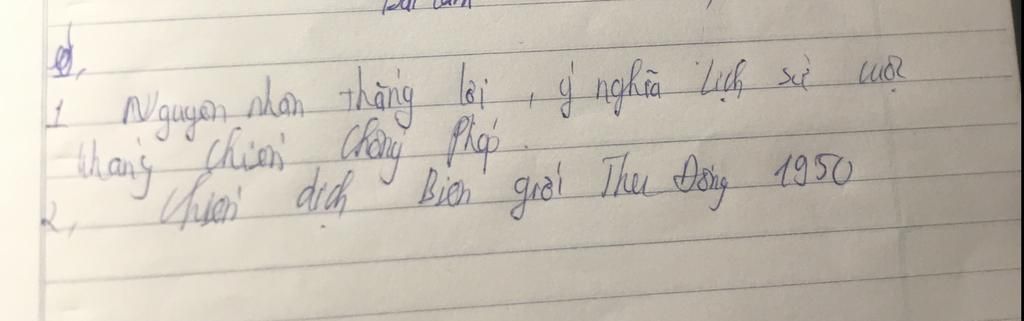 1 Nguyên nhân thắng lợi, ý nghĩa lịch sử cuộc
kháng chiến chống Pháp.
2, Chiến dịch Biên giới Thu Đông 1950